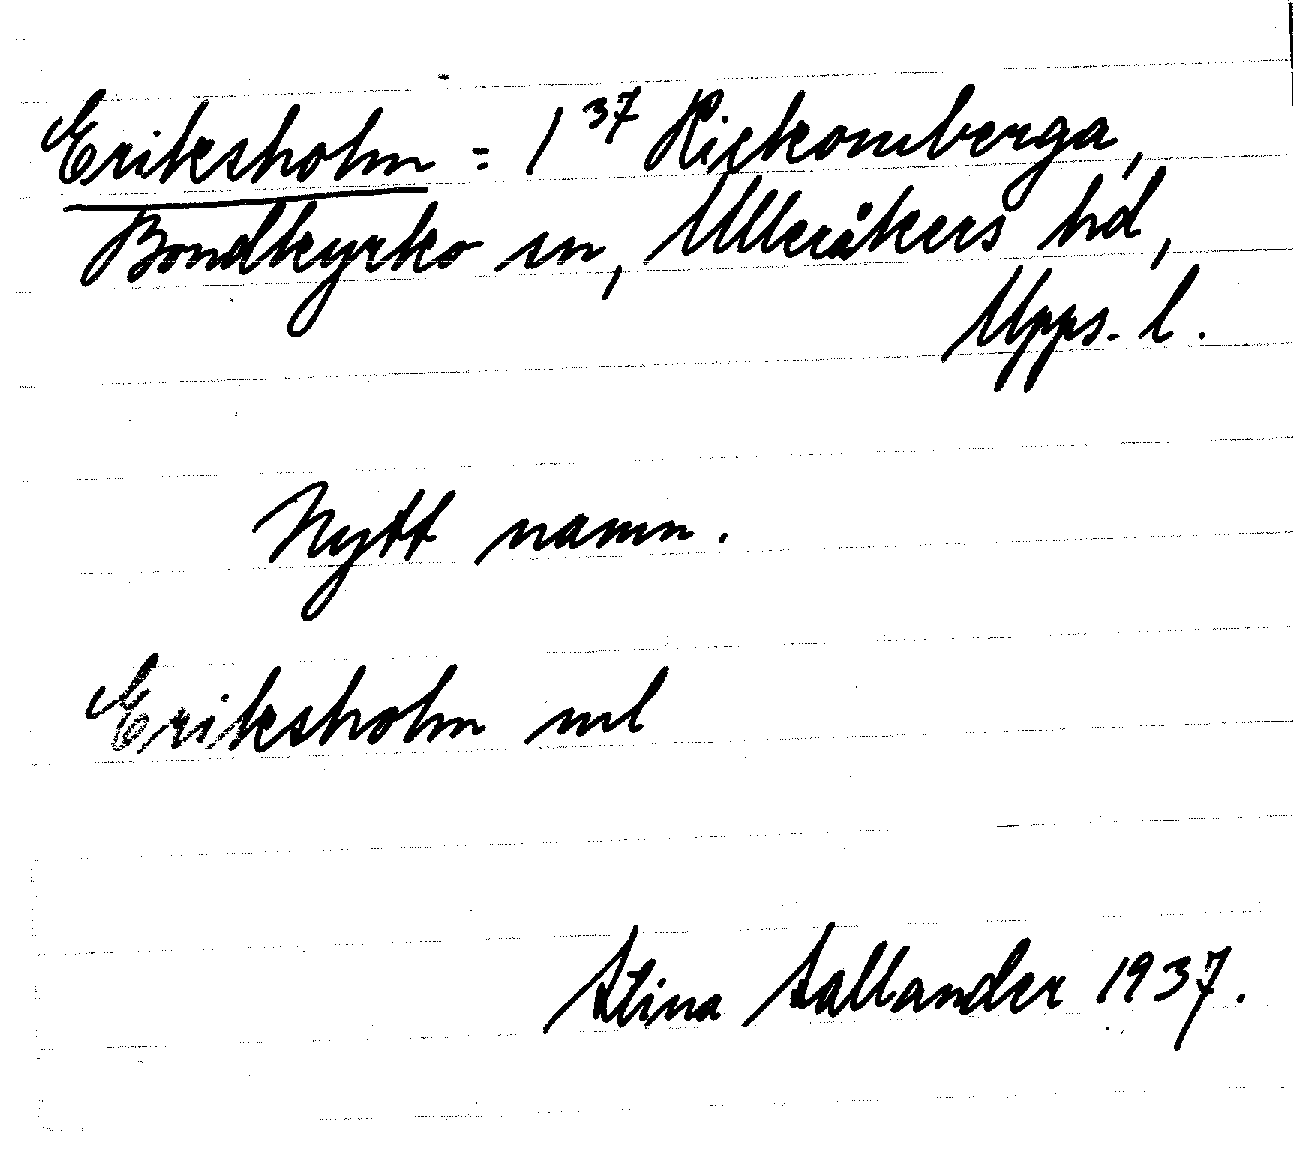 Eriksholm = 1³⁷ Rickomberga,
Bondkyrko sn, Ulleråkers hd,
Upps. l.
Nytt namn.
Eriksholm ml
Stina Sallander 1937.